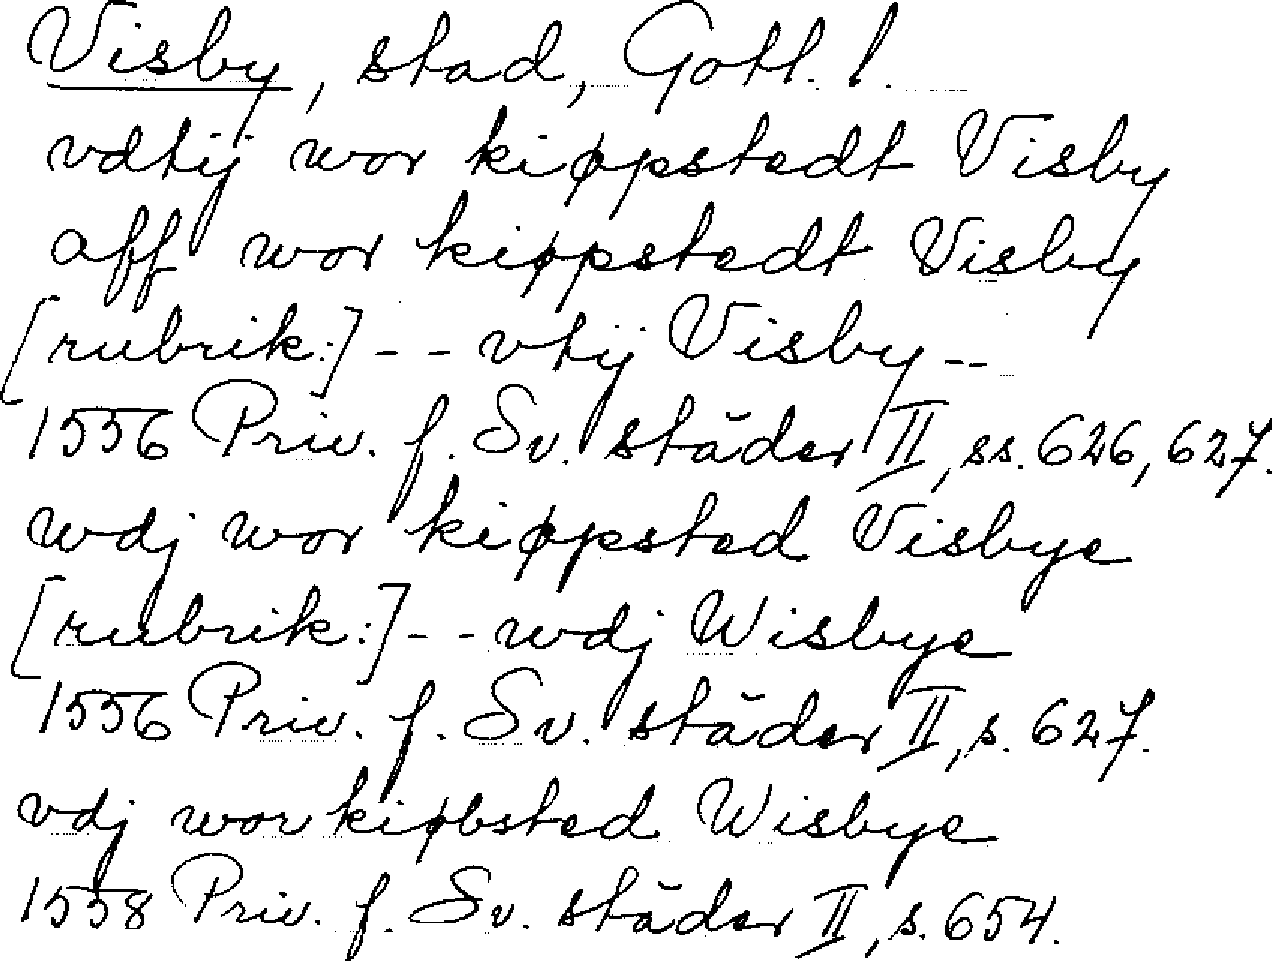 Visby, stad, Gotl. l.
vdtij wor kiøppstedt Visby
aff wor kiøppstedt Visby
[rubrik:] - - vtij Visby - -
1556 Priv. f. Sv. städer II, ss. 626, 627.
wdj wor kiøppsted Visbye
[rubrik:] - - wdj Wisbye
1556 Priv. f. Sv. städer II, s. 627.
vdj wor kiøbsted Wisbye
1558 Priv. f. Sv. städer II, s. 654.